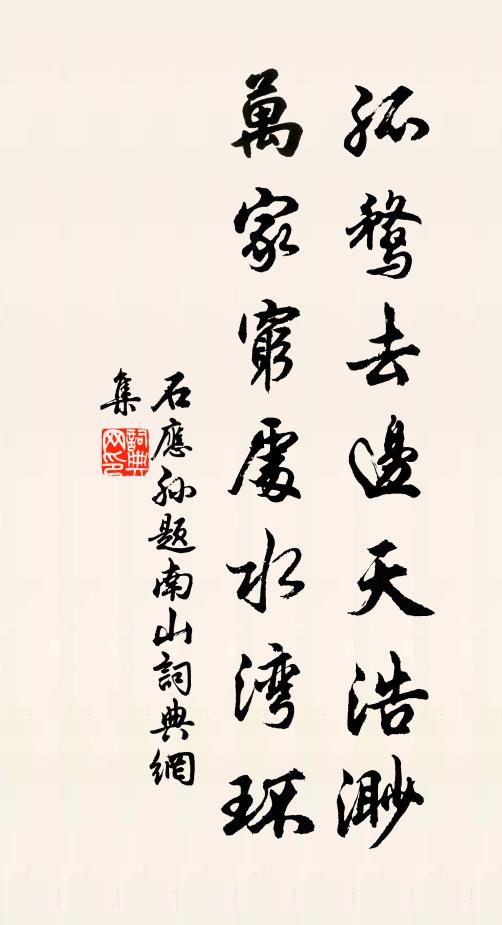 孤鶩去邊天浩渺
萬家窮處水湾环
石應孫題南山詞典網
集
詞典
网印